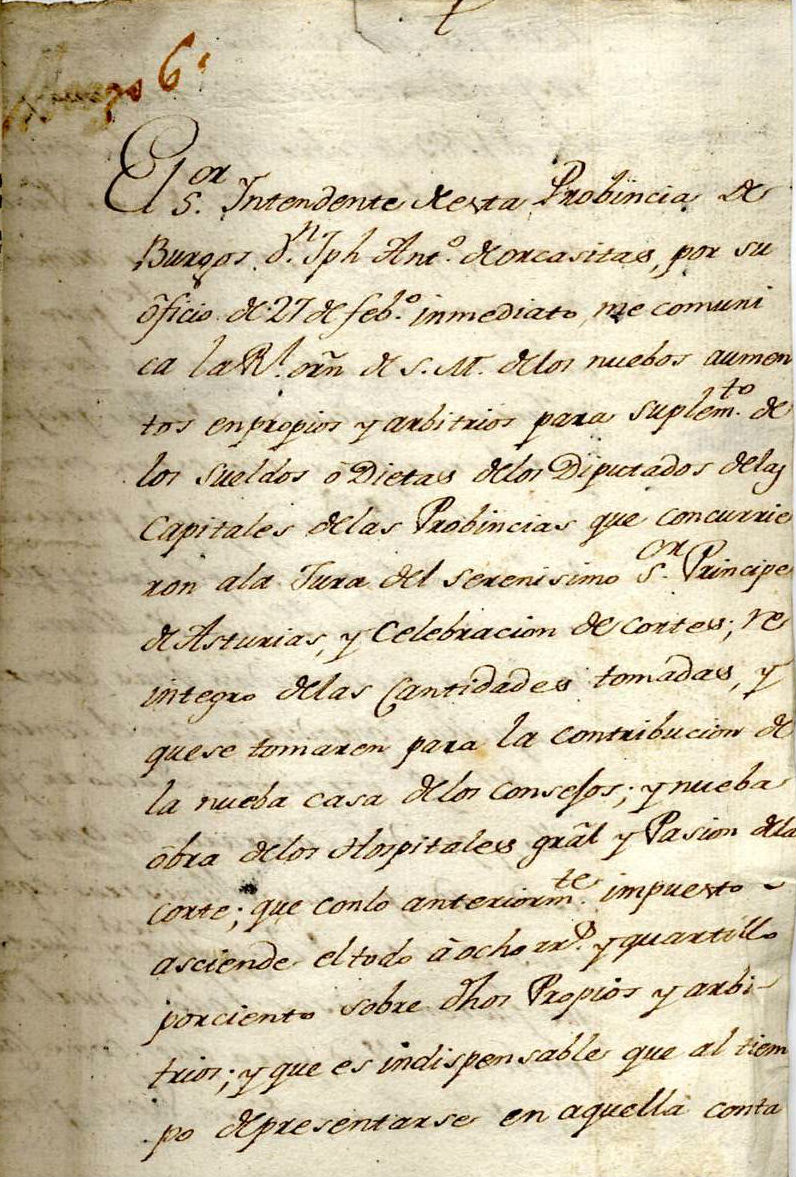 6
El S.or Intendente de esta Probincia de
Burgos D.n Jph Ant.o de orcasitas, por su
ôficio de 27 de feb.o inmediato, me comuni
ca la R.l orñ de S. M. de los nuebos aumen
tos en propios y arbitrios para suplem.to de
los sueldos ô Dietas de los Diputados de las
Capitales de las Probincias que concurrie
ron ala Jura del serenisimo S.or Principe
de Asturias, y Celebracion de cortes; re
integro de las Cantidades tomadas, y
que se tomaren para la contribucion de
la nueba casa de los consejos; y nueba
ôbra de los Hospitales grãl y Pasion dela
corte; que conlo anteriorm.te impuesto ~
asciende el todo â ocho rr.s y quartillo
porciento sobre dhos Propios y arbi-
trios; y que es indispensable que al tiem
po de presentarse en aquella conta